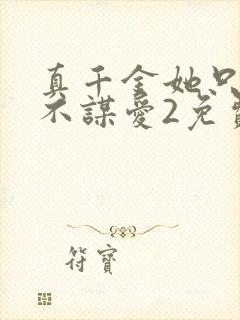 真千金她只
不謀愛2免費
符寶